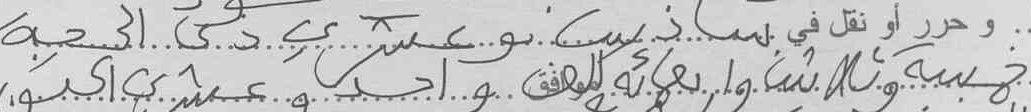 .. و حرر أو نقل في سادس و عشري ذي الحجة
خمسة وثلاثين وأربعمائة للموافق واحد و عشري اكتوبر